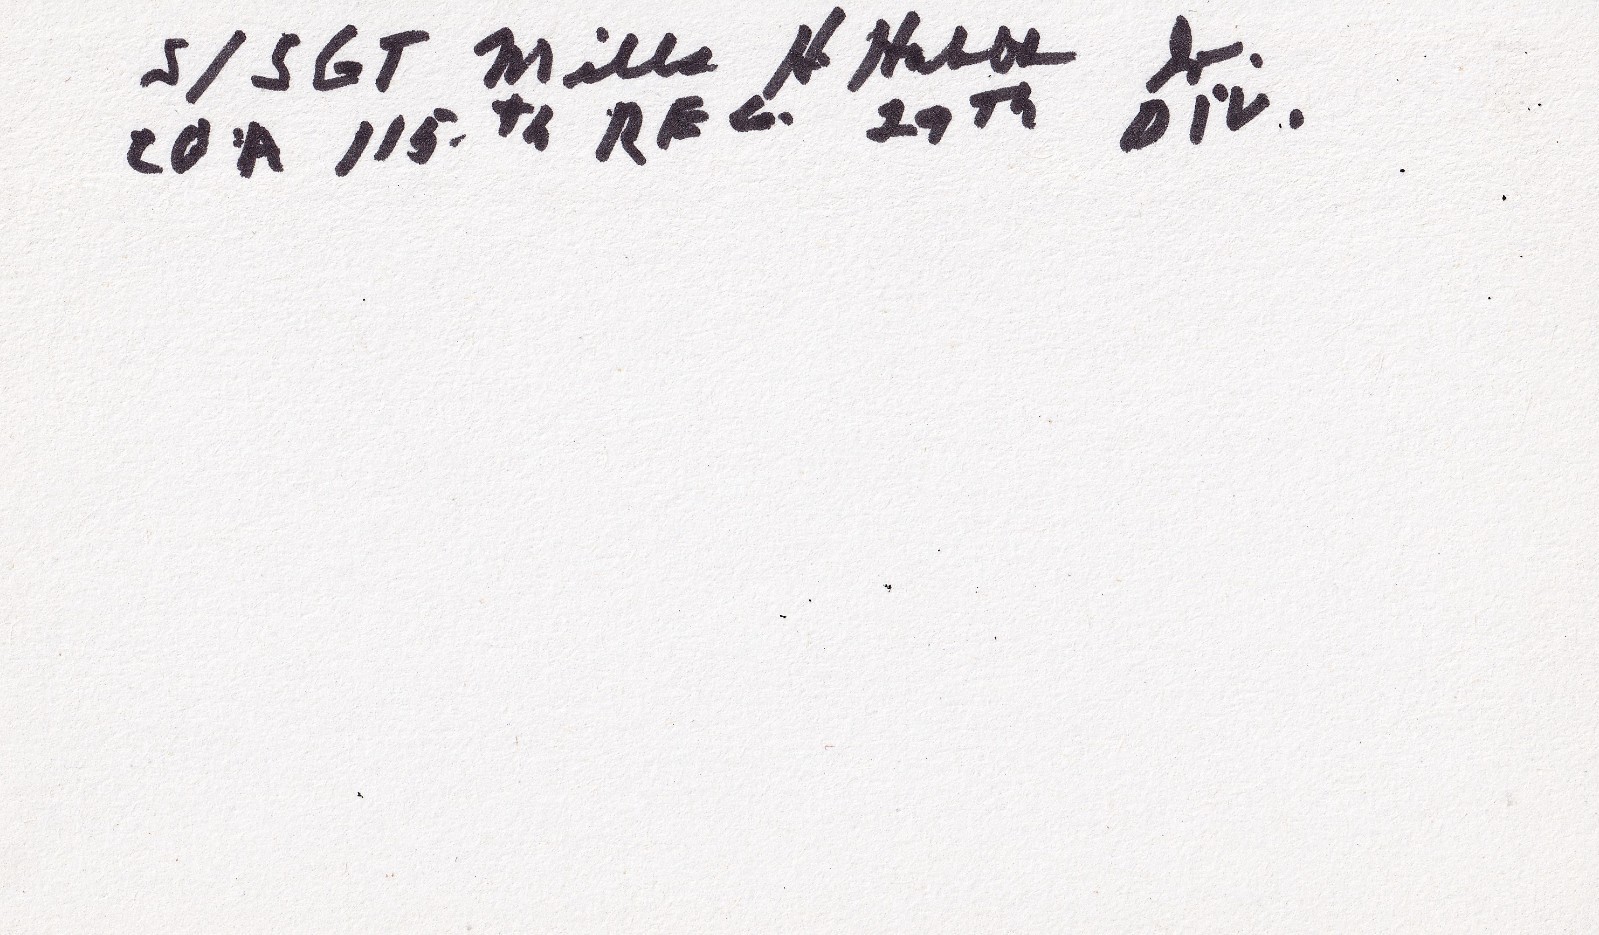 S/SGT Mills H Hobbs Jr.
CO. A 115.th REG. 29Th DIV.